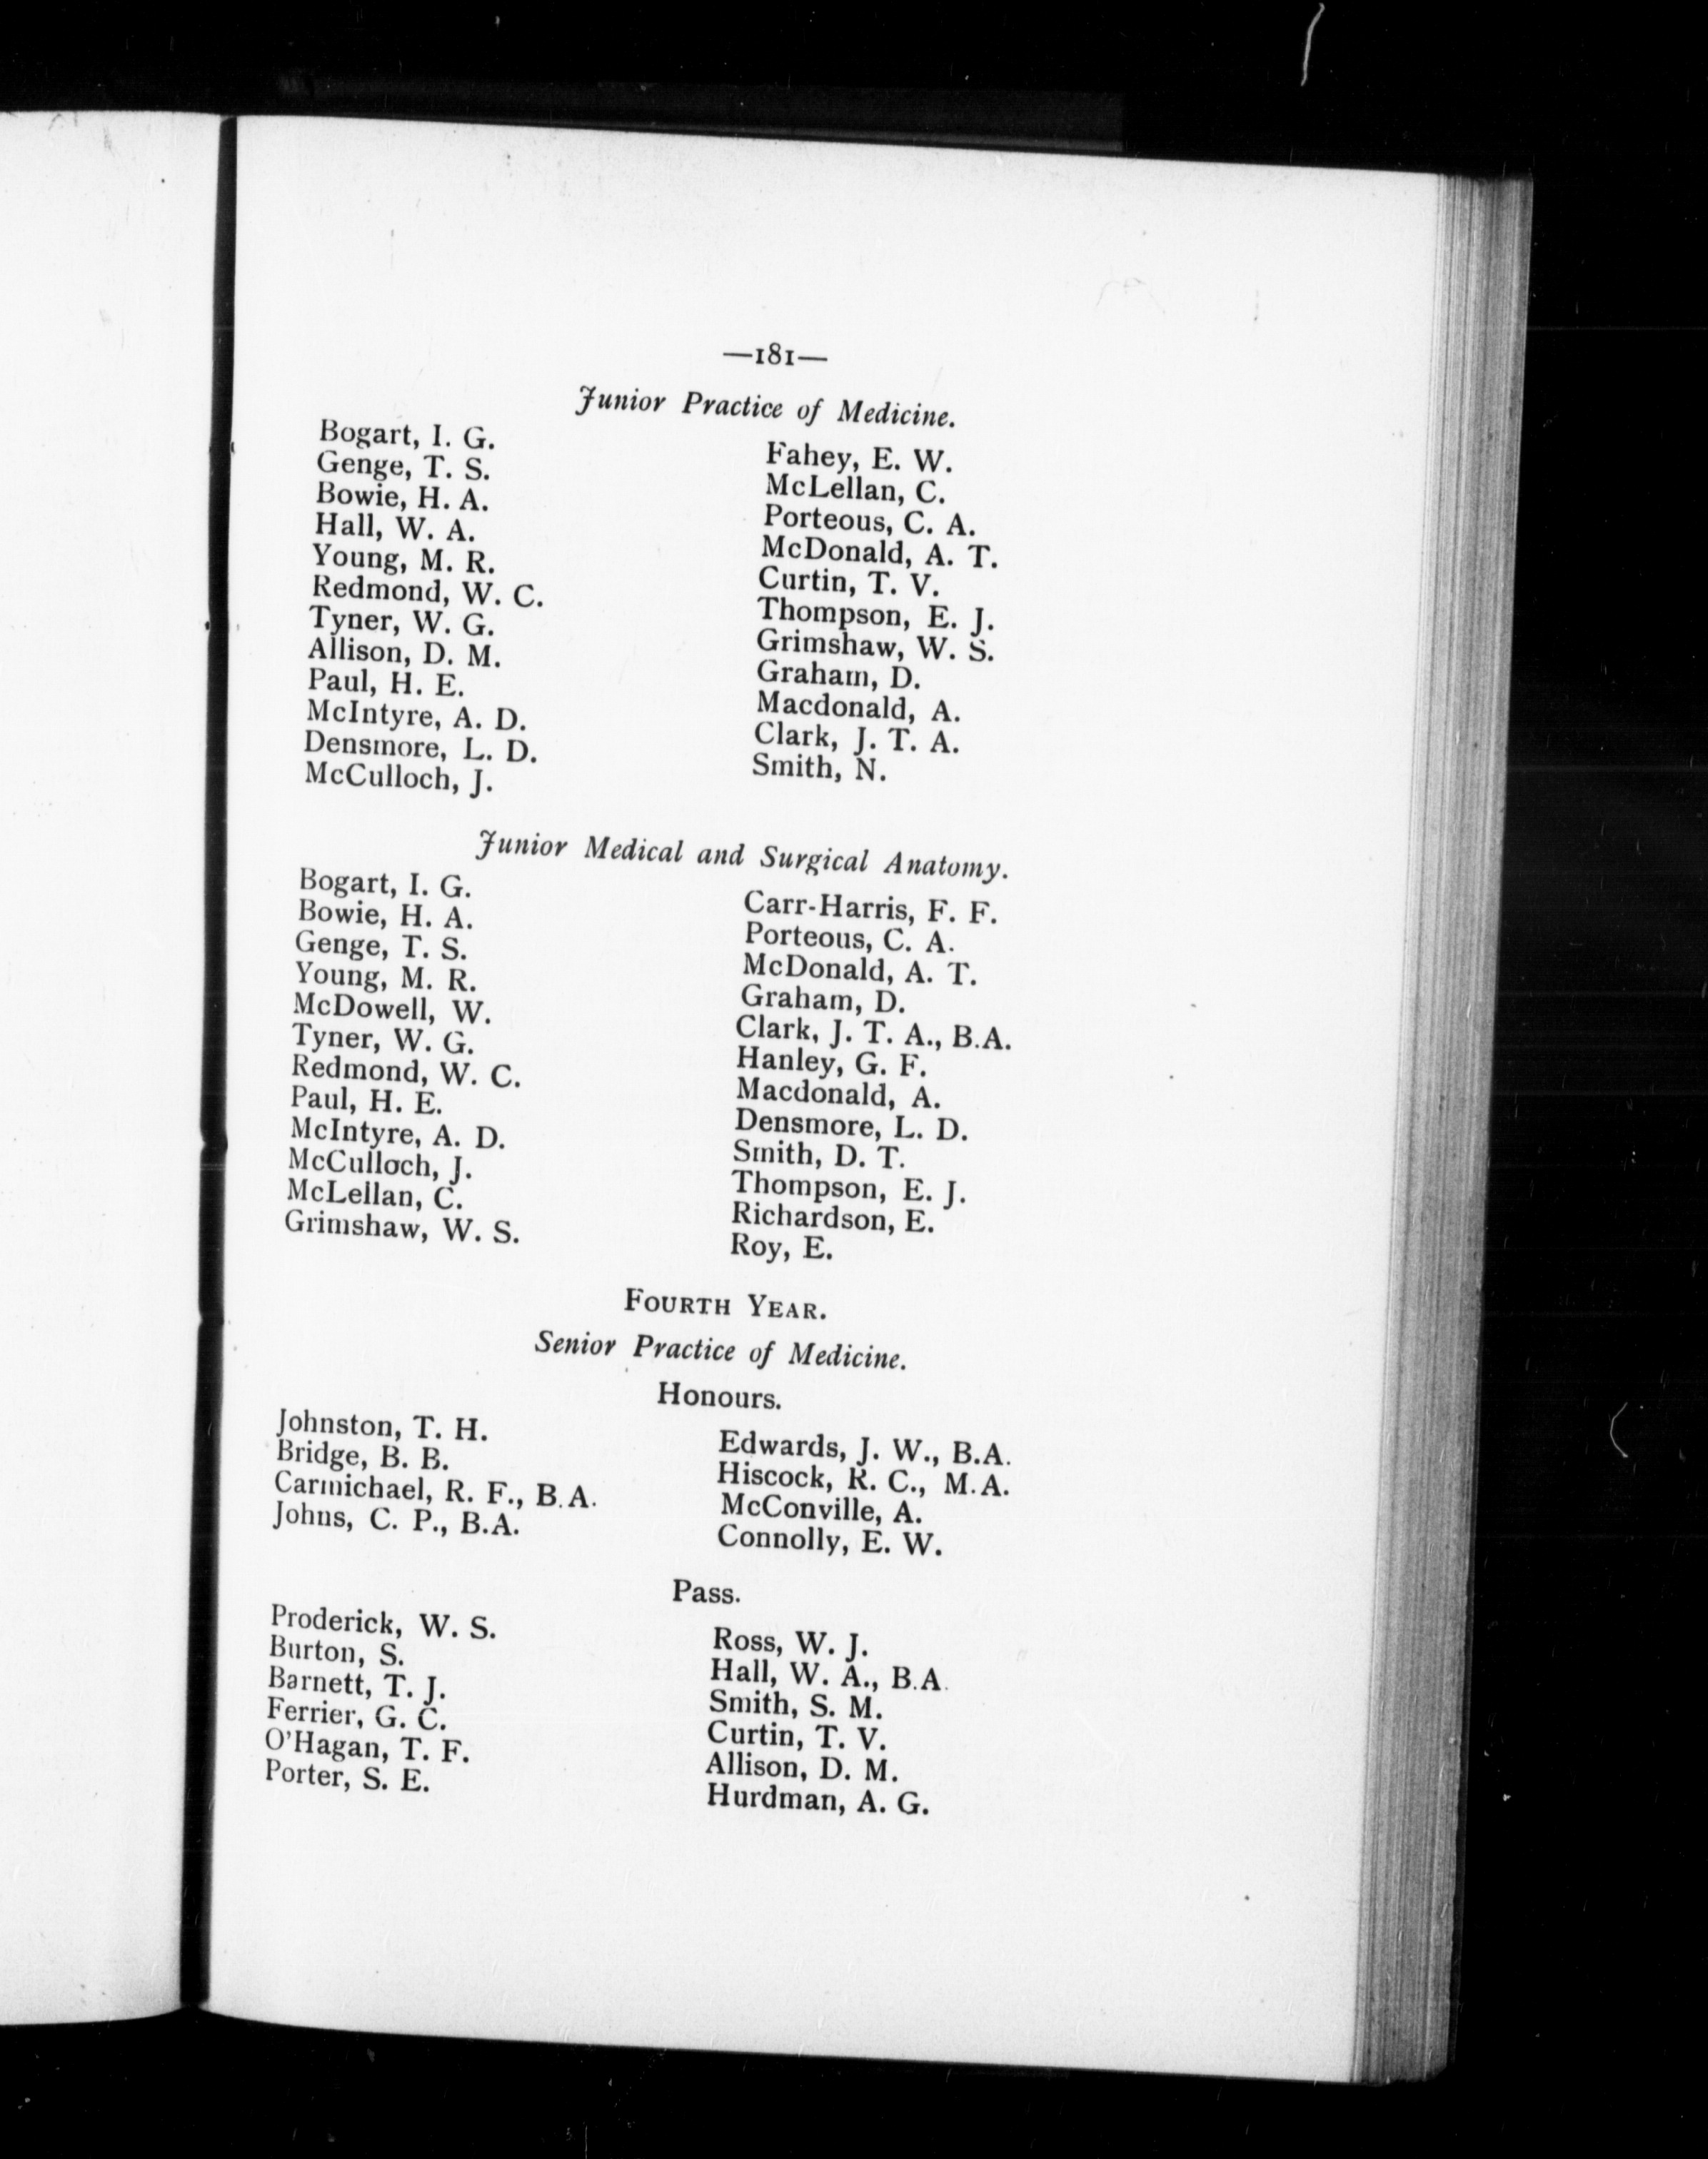 —181—
Junior Practice of Medicine.
Bogart, I. G.
Genge, T. S.
Bowie, H. A.
Hall, W. A.
Young, M. R.
Redmond, W. C.
Tyner, W. G.
Allison, D. M.
Paul, H. E.
McIntyre, A. D.
Densmore, L. D.
McCulloch, J.
Fahey, E. W.
McLellan, C.
Porteous, C. A.
McDonald, A. T.
Curtin, T. V.
Thompson, E. J.
Grimshaw, W. S.
Graham, D.
Macdonald, A.
Clark, J. T. A.
Smith, N.
Junior Medical and Surgical Anatomy.
Bogart, I. G.
Bowie, H. A.
Genge, T. S.
Young, M. R.
McDowell, W.
Tyner, W. G.
Redmond, W. C.
Paul, H. E.
McIntyre, A. D.
McCulloch, J.
McLellan, C.
Grimshaw, W. S.
Carr-Harris, F. F.
Porteous, C. A.
McDonald, A. T.
Graham, D.
Clark, J. T. A., B.A.
Hanley, G. F.
Macdonald, A.
Densmore, L. D.
Smith, D. T.
Thompson, E. J.
Richardson, E.
Roy, E.
FOURTH YEAR.
Senior Practice of Medicine.
Honours.
Johnston, T. H.
Bridge, B. B.
Carmichael, R. F., B.A.
Johns, C. P., B.A.
Edwards, J. W., B.A.
Hiscock, R. C., M.A.
McConville, A.
Connolly, E. W.
Pass.
Proderick, W. S.
Burton, S.
Barnett, T. J.
Ferrier, G. C.
O'Hagan, T. F.
Porter, S. E.
Ross, W. J.
Hall, W. A., B.A.
Smith, S. M.
Curtin, T. V.
Allison, D. M.
Hurdman, A. G.